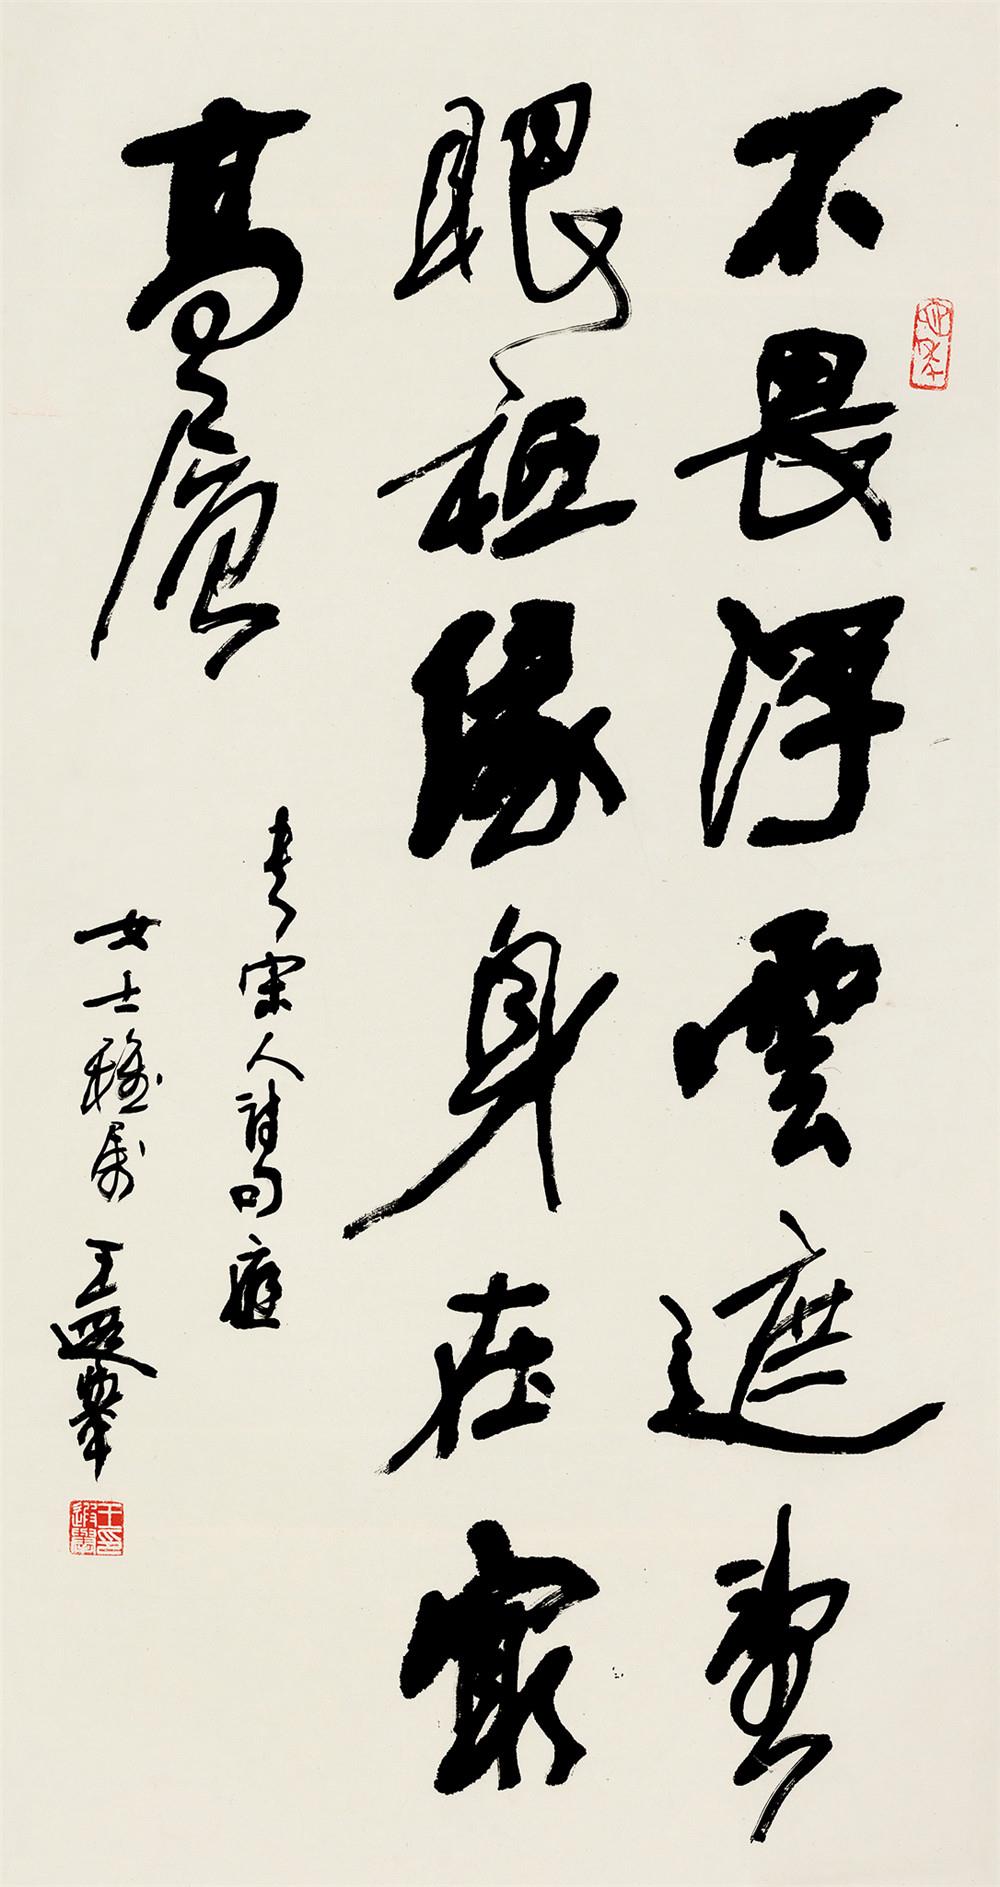 不畏浮雲遮望
眼祗緣身在最
高層
書宋人詩句應
女士雅属 王遐舉
王遐舉印